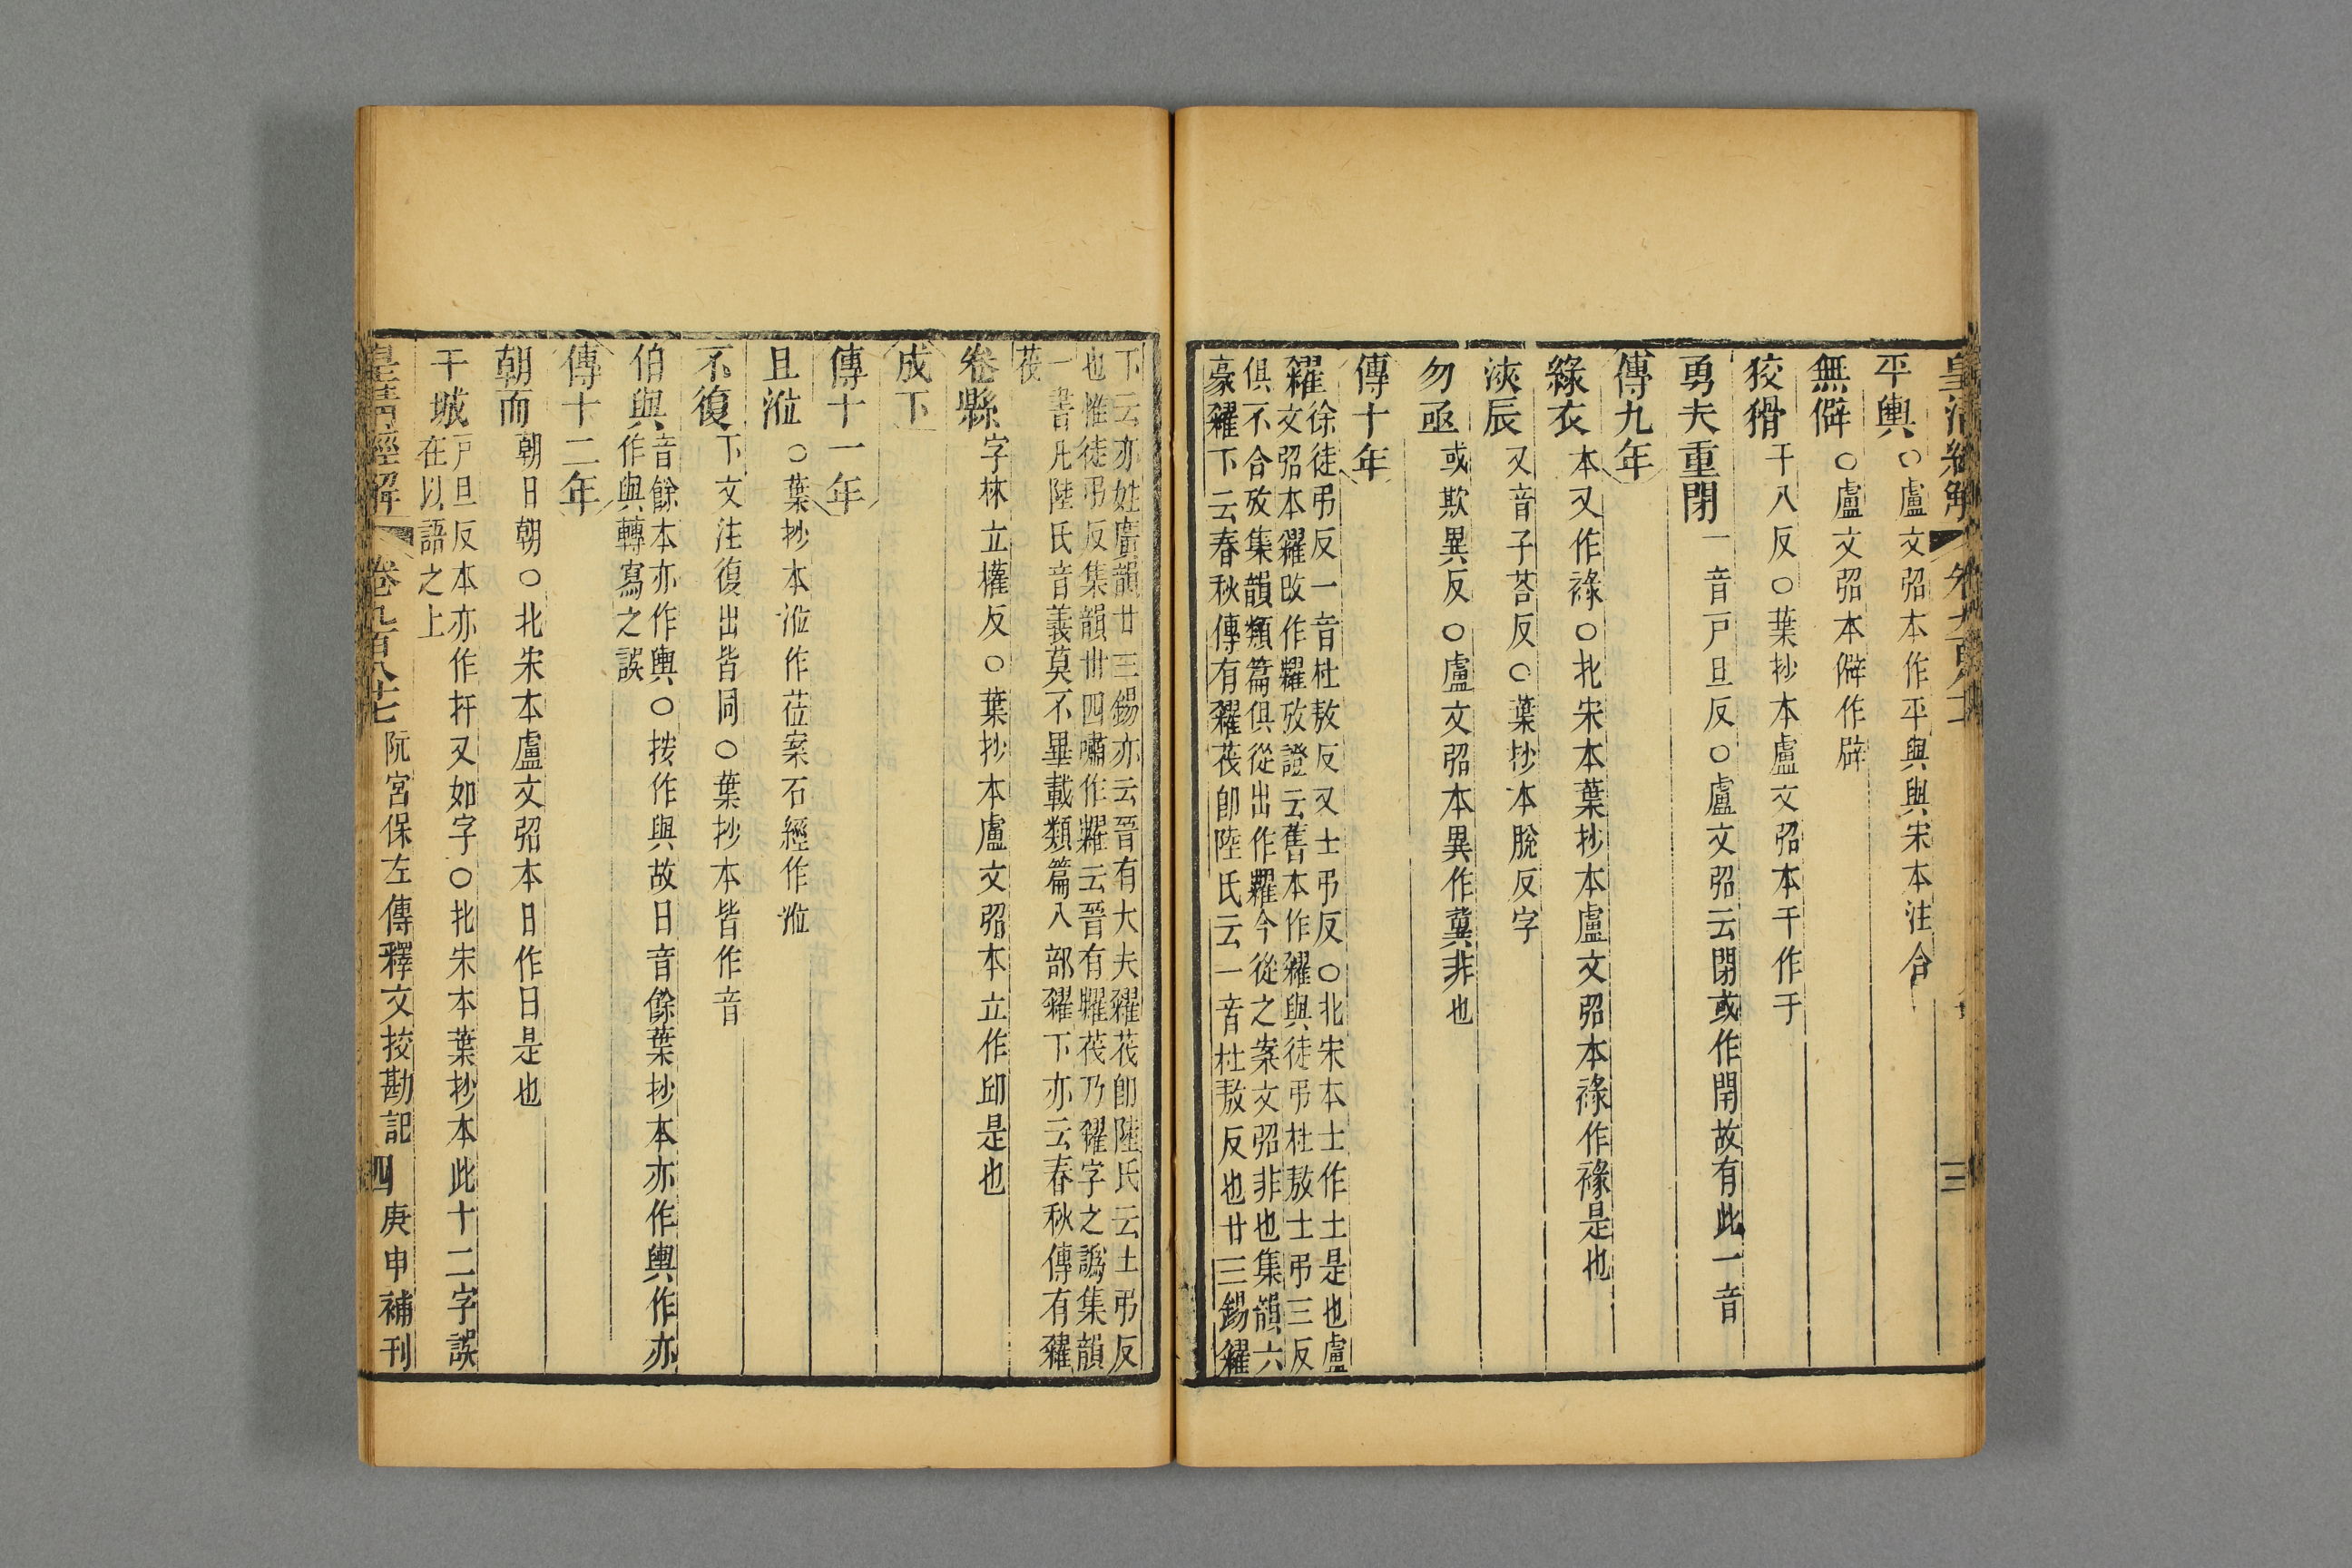 皇清經解 三
平輿○盧文弨本作平與與宋本注合
無僻○盧文弨本僻作辟
狡猾干八反○葉抄本盧文弨本干作于
勇夫重閉一音戸旦反○盧文弨云閉或作閈故有此一音
傳九年
緣衣本又作祿○北宋本葉抄本盧文弨本祿作褖是也
浹辰又音子荅反○葉抄本脫反字
勿亟或欺異反○盧文弨本異作冀非也
傳十年
糴徐徒弔反一音杜敖反又士弔反○北宋本士作土是也盧
文弨本糴改作糶攷證云舊本作糴與徒弔杜敖士弔三反
俱不合攷集韻類篇俱從出作糶今從之案文弨非也集韻六
豪糴下云春秋傳有糴茷卽陸氏云一音杜敖反也廿三錫糴
下云亦姓廣韻廿三錫亦云晉有大夫糴茷卽陸氏云土弔反
也惟徒弔反集韻卅四嘯作糶云晉有糶茷乃糴字之譌集韻
一書凡陸氏音義莫不畢載類篇入部糴下亦云春秋傳有糴
茷
卷縣字林立權反○葉抄本盧文弨本立作邱是也
成下
傳十一年
且涖○葉抄本涖作莅案石經作涖
不復下文注復出皆同○葉抄本皆作音
伯與音餘本亦作輿○按作與故日音餘葉抄本亦作輿作亦
作與轉寫之誤
傳十二年
朝而朝日朝○北宋本盧文弨本日作曰是也
干城戸旦反本亦作扞又如字○北宋本葉抄本此十二字誤
在以語之上
皇清經解 卷九百八十七 阮宮保左傳釋文挍勘記 四 庚申補刊